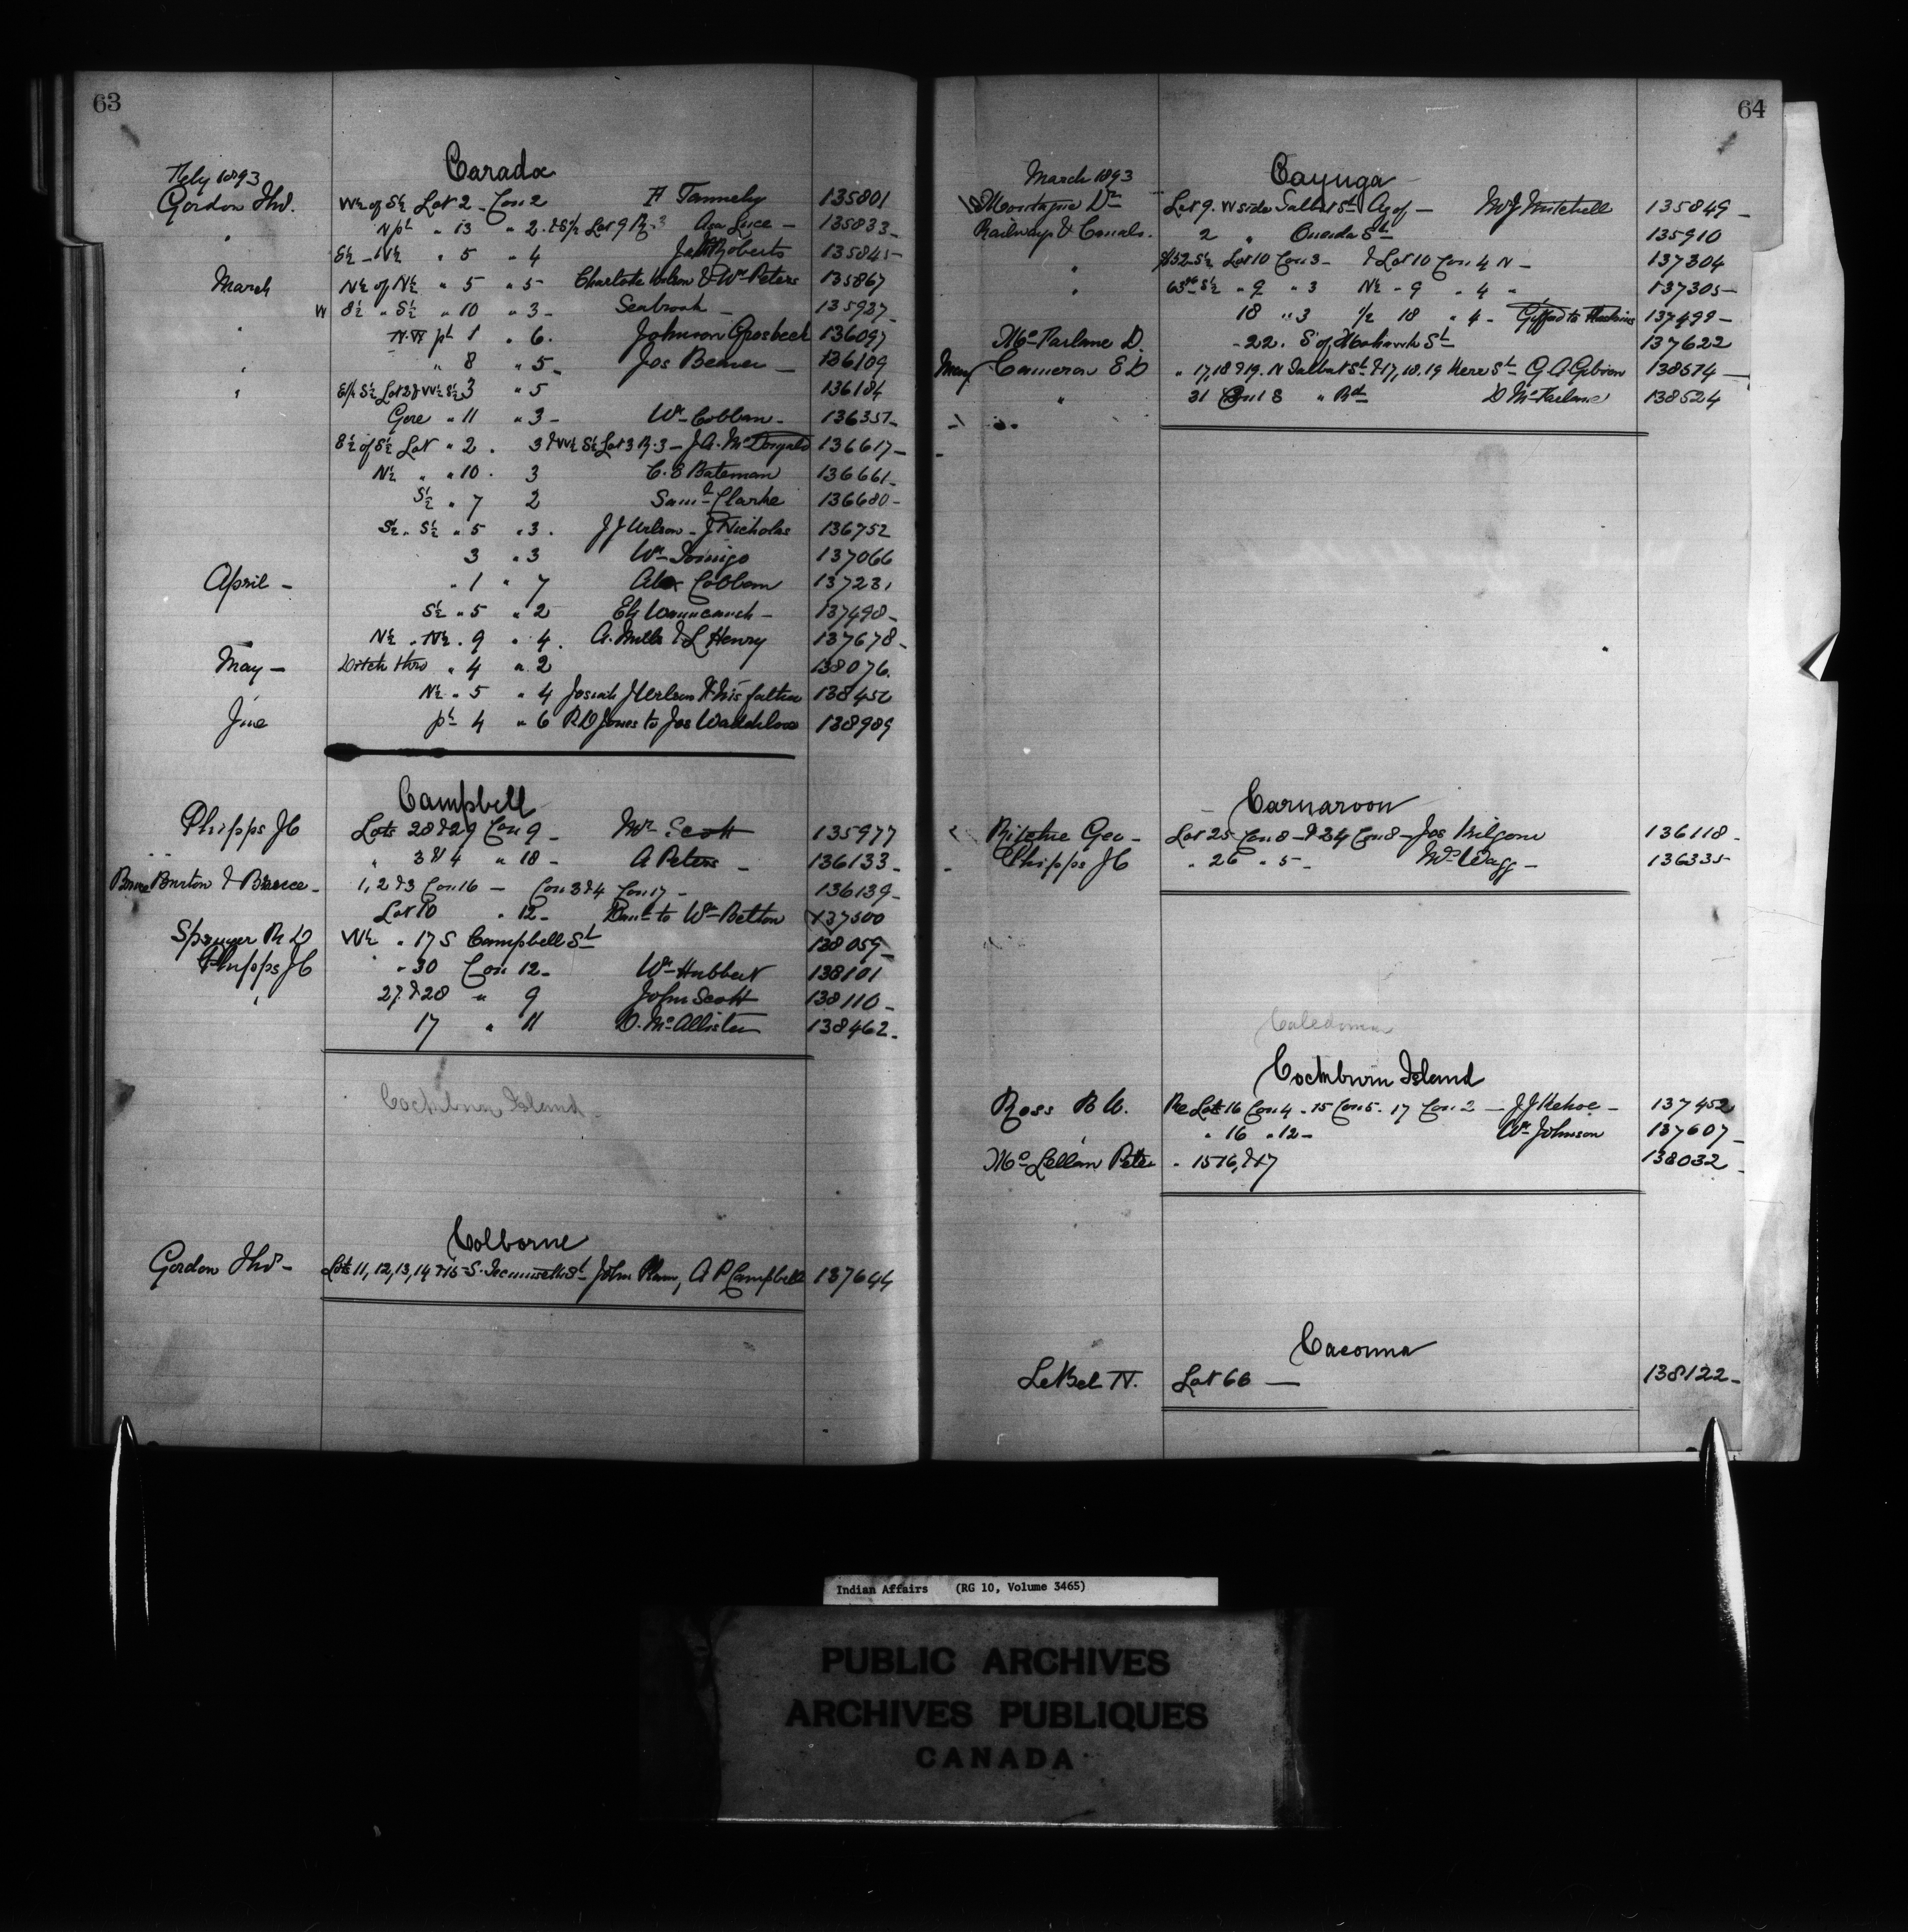 63
Caradoc
Feby 1893
Gordon Thos. W½ of S½ Lot 2 Con 2 135801
" N pt " 13 " 2. & S pt Lot 9 R. 3 Asa Luce — 135833 —
E½ - N½ " 5 " 4 Roberts 135845 —
March N½ of N½ " 5 " 5 Charlotte Wilson & Wm Peters 135867
W S½ " S½ " 10 " 3 — Seabrook — 135937 —
" N.W pt 1 " 6. Johnson Grosbeck 136097
" " 8 " 5 — Jos Beaver — 136109
" E pt S½ Lot 2 & W½ S½ 3 " 5 136184
Gore " 11 " 3 — Wm Cobban — 136351 —
S½ of S½ Lot " 2 . 3 & W½ S½ Lot 3 R. 3 — J A. McDougald 136617 —
N½ " " 10 . 3 C. E Bateman 136661 —
S½ " 7 2 Saml Clarke 136680 —
S½ " S½ " 5 " 3 . J J Wilson - J Nicholas 136752
3 " 3 Wm 137066
April — " 1 " 7 Alex Cobban 137231
S½ " 5 " 2 Eli 137498 —
N½ . N½ . 9 " 4 . A. Mills & L Henry 137678 —
May — Ditch thro " 4 " 2 138076.
N½ " 5 " 4 Josiah J Wilson his father 138450
June pt 4 " 6 R D Jones to Jos Waddilove 138989
Campbell
Phipps JC Lots 28 & 29 Con 9 — Mr Scott 135977
" 3 & 4 " 10 — A Peters — 136133 —
Bruce Burton & Bruce — 1, 2 & 3 Con 16 — Con 3 & 4 Con 17 — 136139 —
Lot 10 " 12 — to Wm Belton 137500
Spenger R D W½ " 17 S Campbell St 138059 —
Phipps JC " 30 Con 12 — Wm Hubbert 138101
" 27 & 28 " 9 John Scott 138110 —
17 " 11 D. McAllister 138462 —
Cockburn Island
Colborne
Gordon Thos — Lots 11, 12, 13, 14 & 15 S. Tecumseth St John A P Campbell 137644
64
Cayuga
March 1893
Montague Dr Lot 9. W side Talbot St Ag of — W J Mitchell 135849 —
Railways & Canals. 2 " Oneida St 135910
" S½ Lot 10 Con 3 — & Lot 10 Con 4 N — 137304
" S½ " 9 " 3 N½ " 9 " 4 " 137305 —
18 " 3 ½ 18 " 4 — Gifford to Haskins 137499 —
McParlane D. — 22. S of Mohawk St 137622
May Cameron E D " 17, 18 & 19. N Talbot St & 17, 18, 19 Kerr St G A Gibson 138574 —
" 31 Con 1 S " Rd D McFarlane 138524
Carnarvon
Ritchie Geo — Lot 25 Con 8 — & 24 Con 8 — Jos Kilgour 136118 —
Phipps JC " 26 " 5 — Wm Wagg — 136335
Caledonia
Cockburn Island
Ross B W. Re Lots 16 Con 4 - 15 Con 5 - 17 Con 2 — J J Kehoe — 137452
" 16 " 12 — Wm Johnson 137607 —
McLellan Peter " 15 16, & 17 138032 —
Cacouna
LeBel N. Lot 66 — 138122 —
Indian Affairs (RG 10, Volume 3465)
PUBLIC ARCHIVES
ARCHIVES PUBLIQUES
CANADA